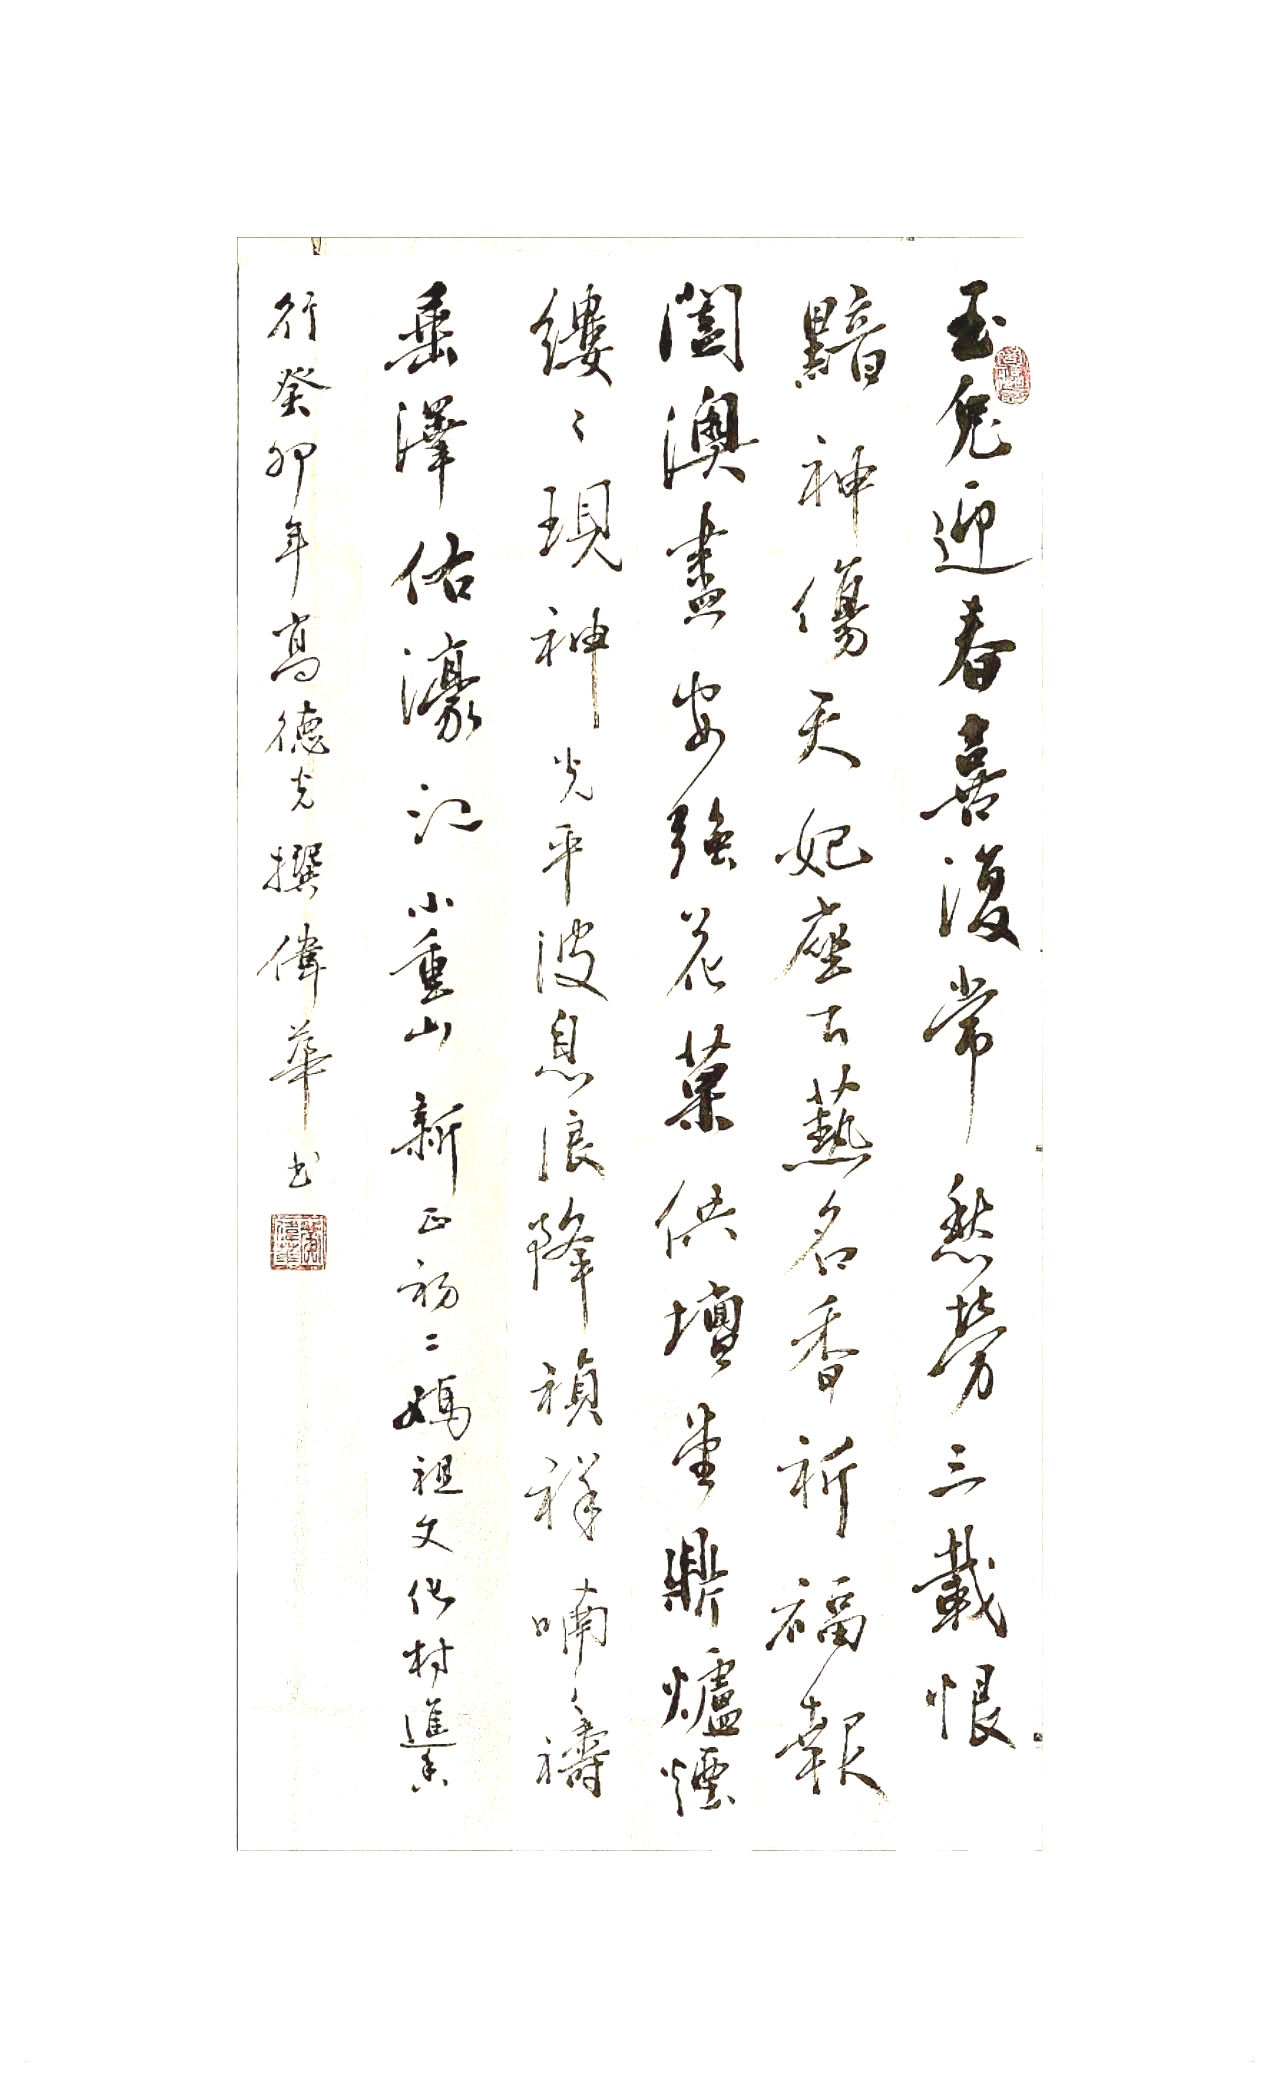 玉兔迎春喜復常愁勞三載恨
黯神傷天妃座下爇名香祈福報
闔澳盡安強花菓供壇堂鼎爐煙
縷〻現神光平波息浪降禎祥喃〻禱
垂澤佑濠江小重山新正初二媽祖文化村進香
行癸卯年高德光撰偉華書